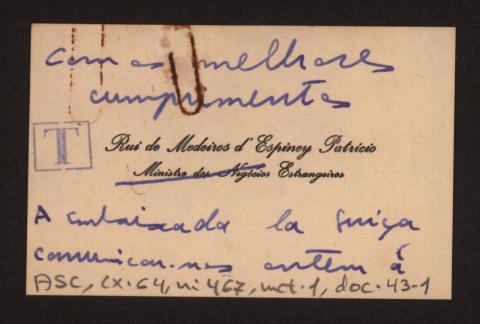 Com os melhores
cumprimentos
T
Rui de Medeiros d'Espiney Patrício
Ministro dos Negócios Estrangeiros
A Embaixada da Suiça
comunicou-nos ontem à
ASC, cx. 64, nº 467, mct. 1, doc. 43-1